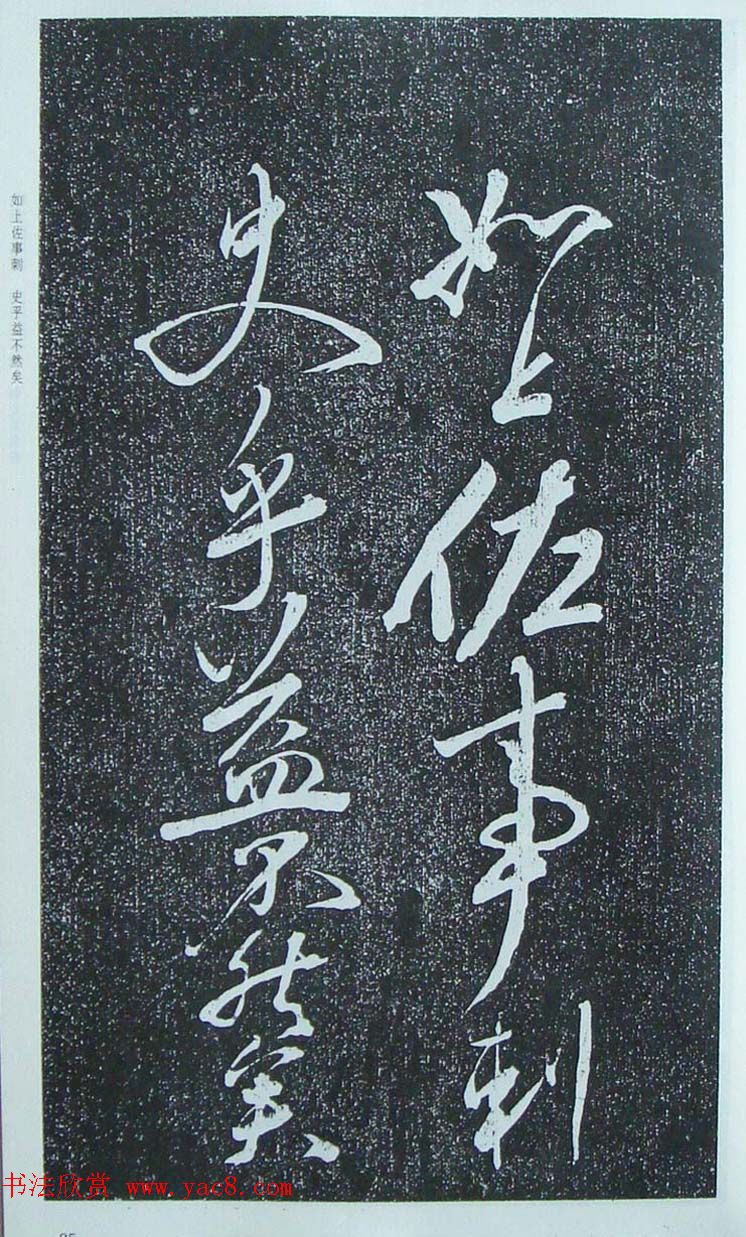 如上佐事刺
史乎益不然矣
如上佐事刺 史乎益不然矣
书法欣赏 www.yac8.com